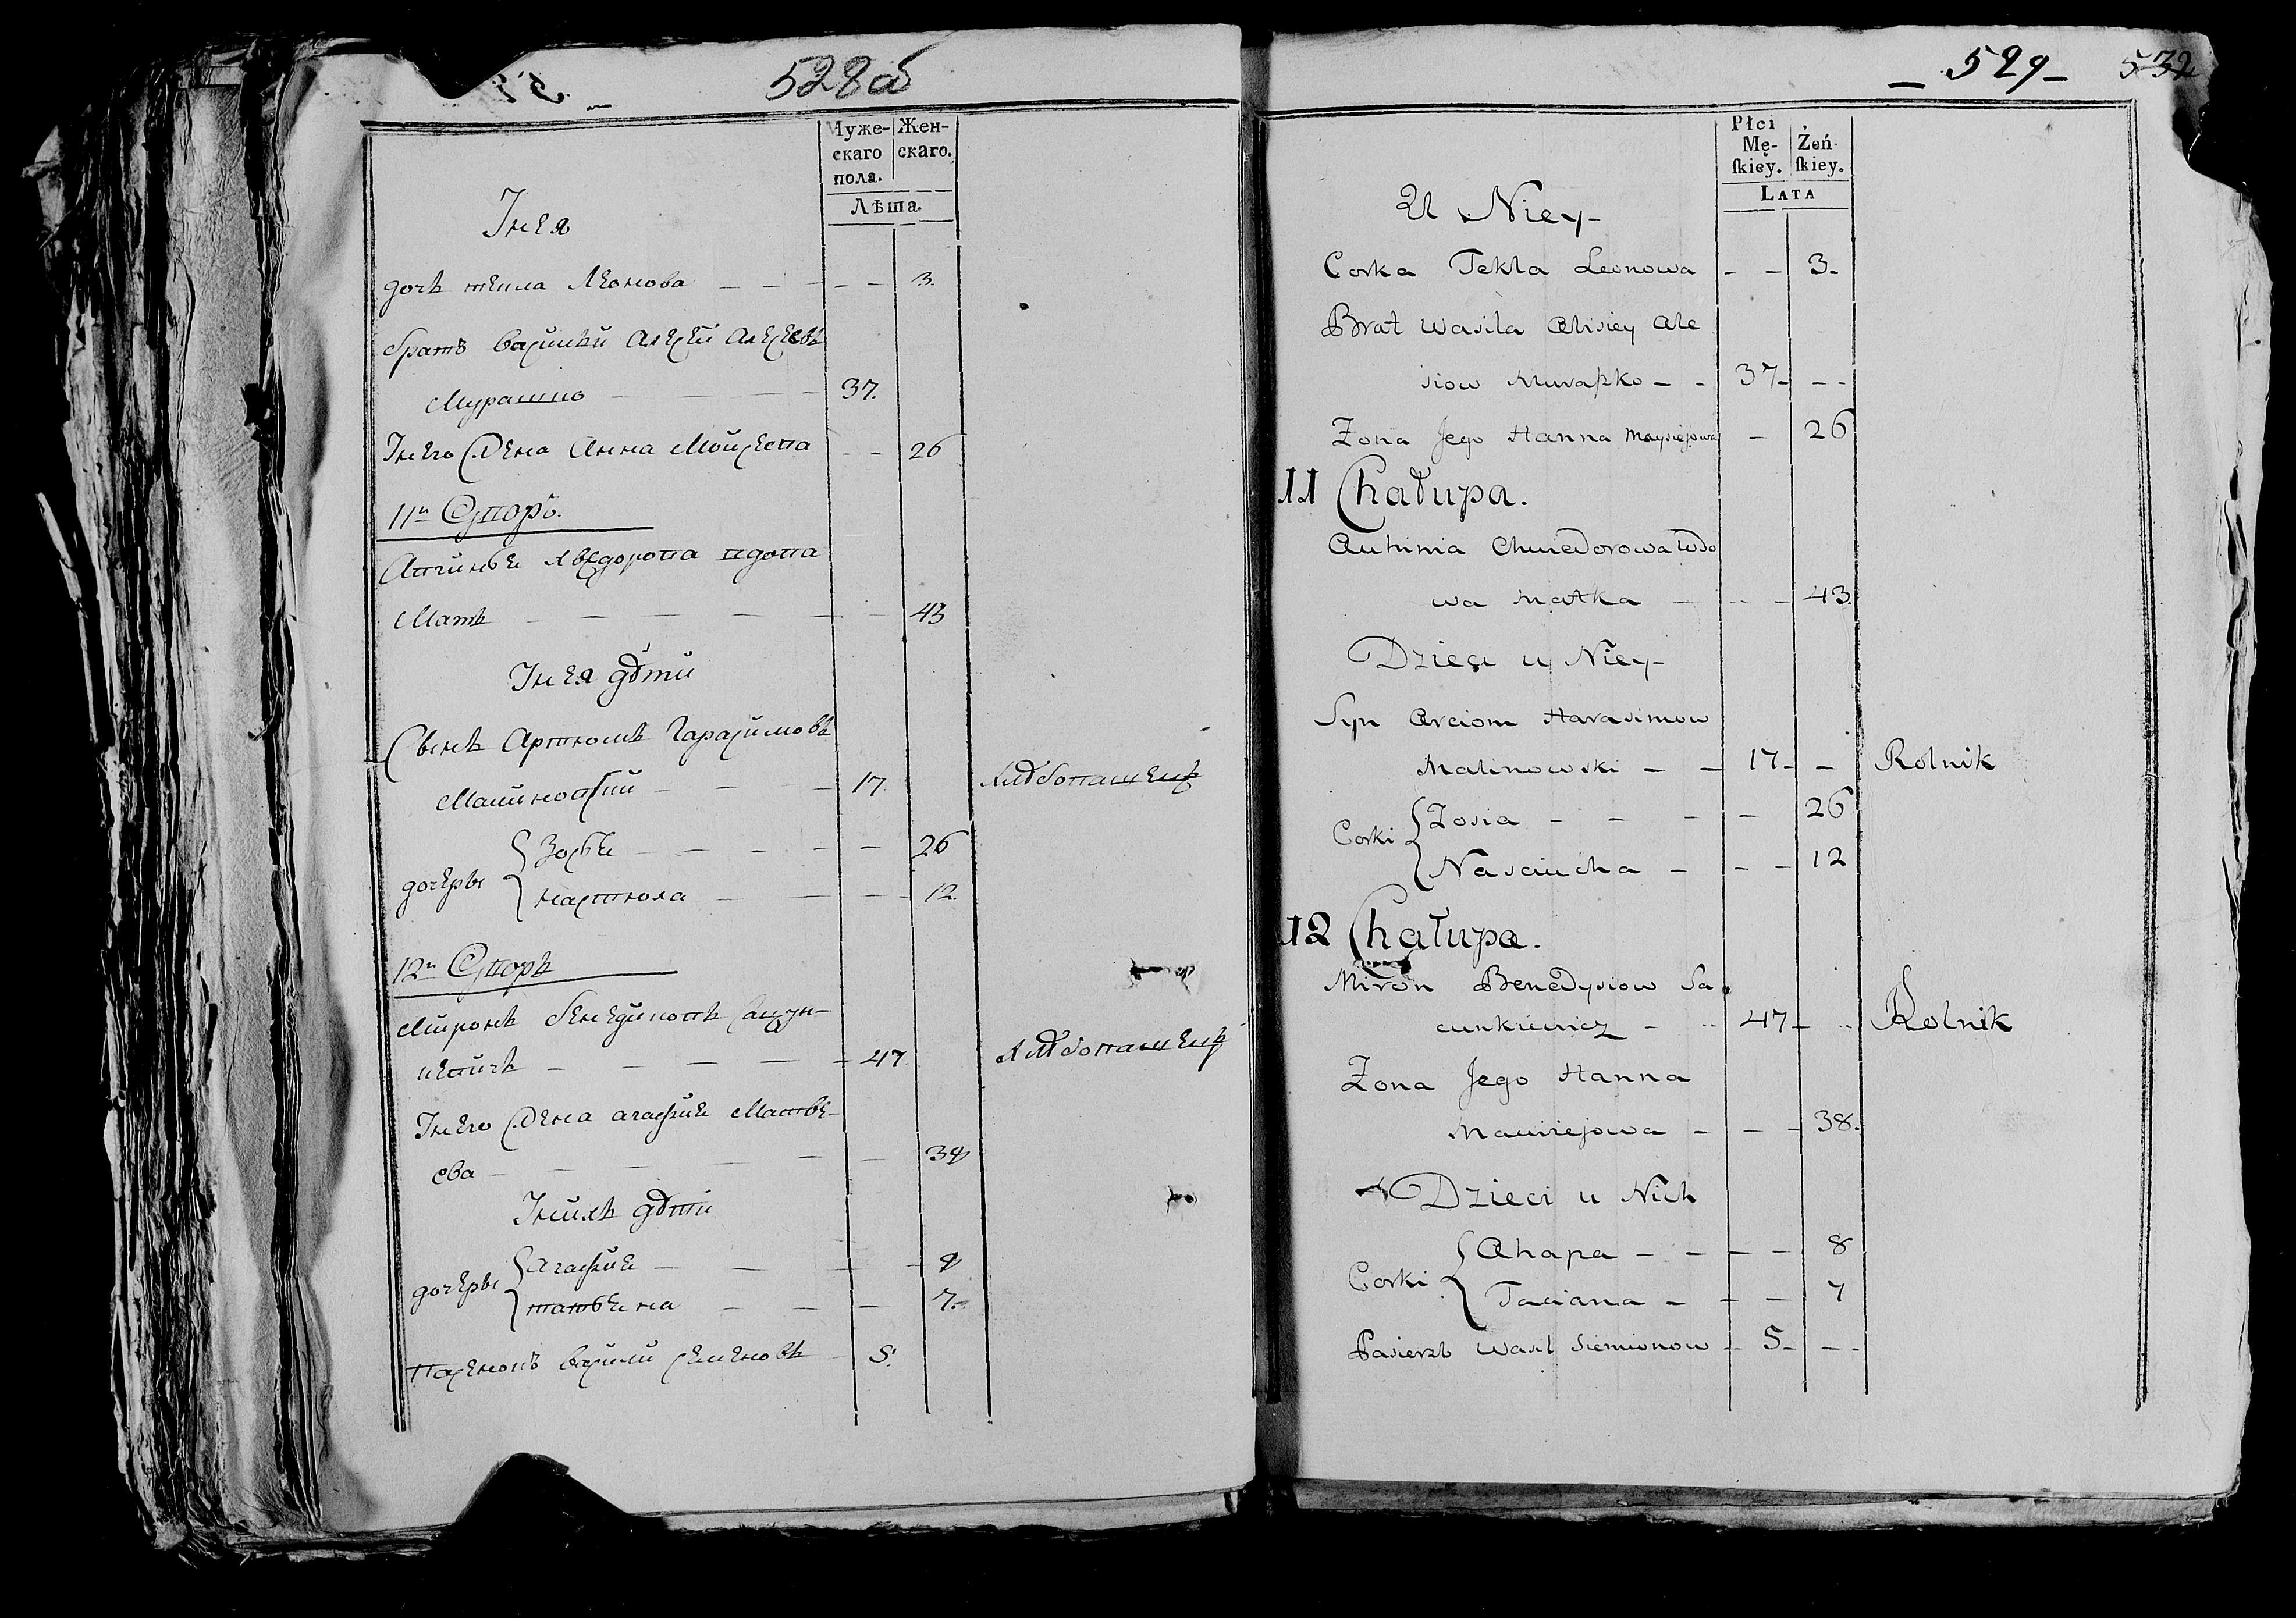 528 об
Муже-
скаго
пола.
Жен-
скаго.
Лѣта.
У нея
дочь текла Леонова — — — — — 3.
братъ василей Алисей Алисеевъ
Мурашко — — — — 37.
У него жена Анна Мойсеева — — 26
11й Дворъ.
Авгинья хведорова вдова
Мать — — — — — — 43
У нея дѣти
Сынъ Артюмъ Гарасимовъ
Малиновский — — — 17. хлѣбопашецъ
дочеры
Зосья — — — — — 26
настюха — — — — 12.
12й Дворъ
Миронъ бенедиковъ Сацун-
кевичъ — — — — 47. хлѣбопашецъ
У него жена агафия Матве-
ева — — — — — 38
У нихъ дѣти
дочеры
Агафия — — — — 8
татьяна — — — 7.
Пасенокъ василий семеновъ — 5.
— 529 — 532
Płci
Mę-
ſkiey.
Żeń-
ſkiey.
LATA
U Niey -
Corka Tekla Leonowa - - 3 -
Brat Wasila Alisiey Ale
siow Muraszko - - 37 - - -
Zona Jego Hanna Maysiejowa - 26
11 Chałupa.
Auhinia Chwiedorowa Wdo
wa Matka - - - 43.
Dzieci u Niey -
Syn Arciom Harasimow
Malinowski - - 17 - - Rolnik
Corki
Zosia - - - - 26
Nasciucha - - - 12
12 Chałupa.
Miron Benedysiow Sa
cunkiewicz - - 47 - - Rolnik
Zona Jego Hanna
Maciejowa - - - 38.
Dzieci u Nich
Corki
Ahapa - - - - 8
Taciana - - - 7
Pasierzb Wasil Siemionow - 5 - - -